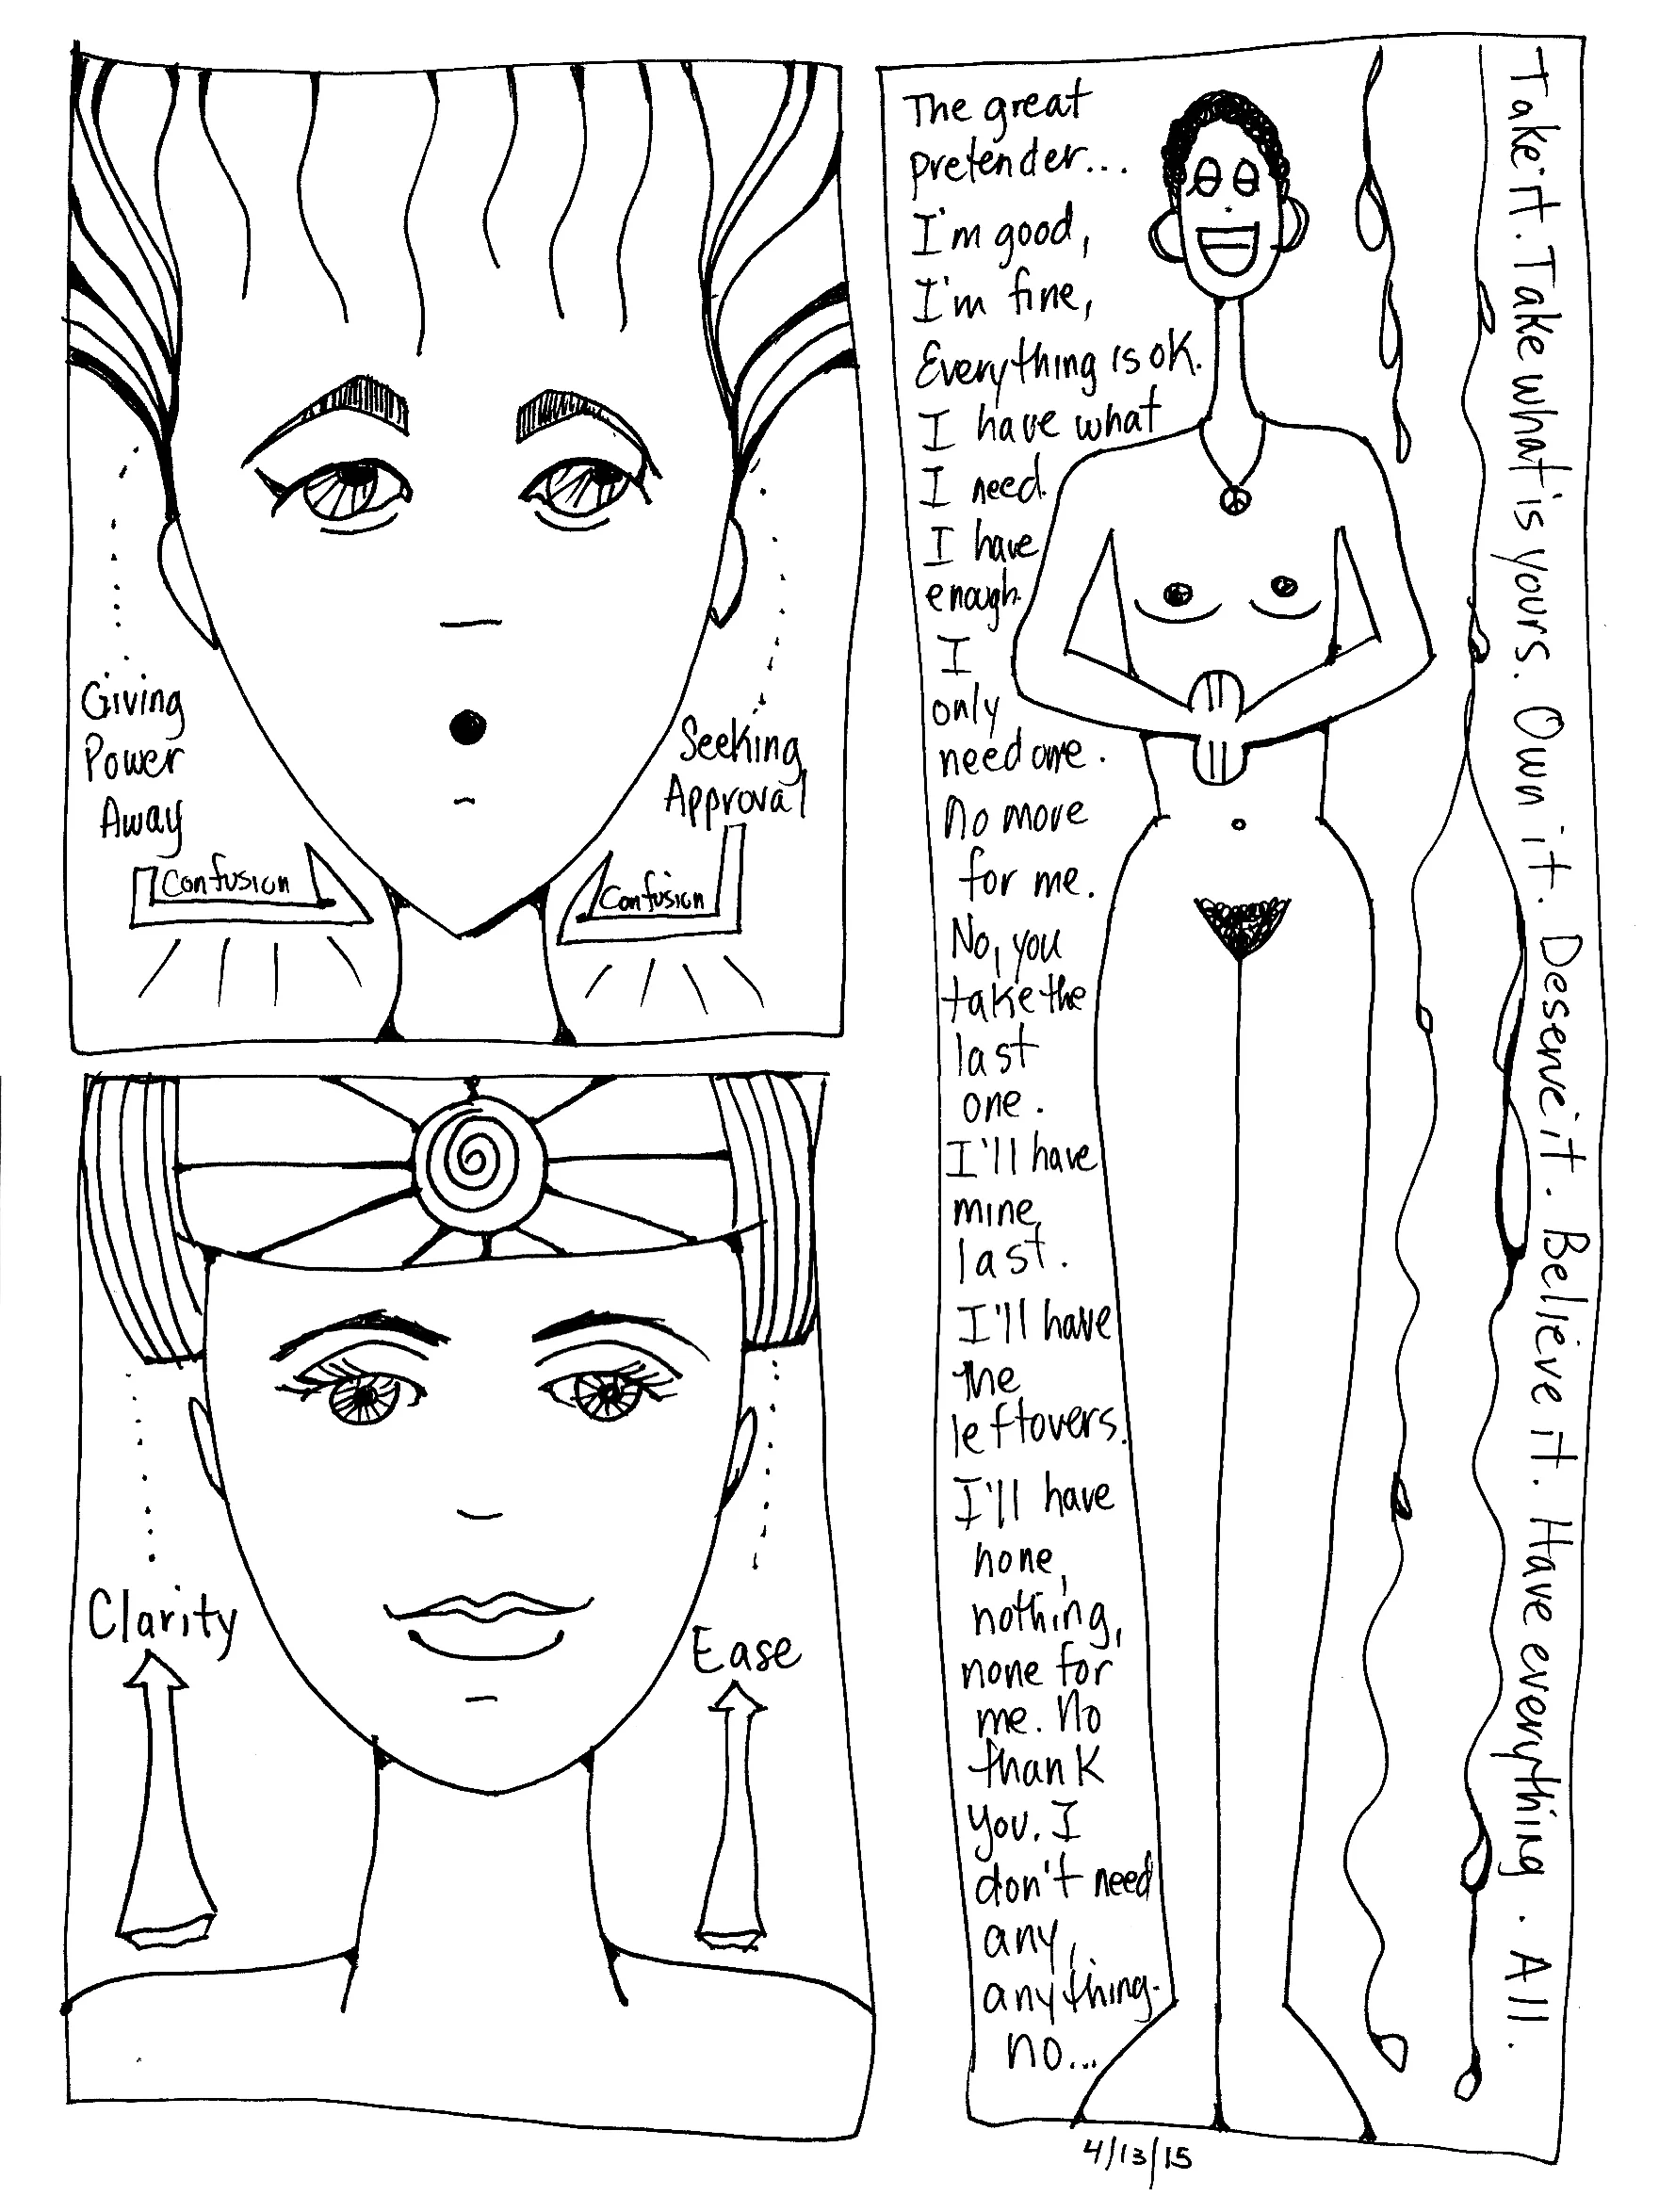 Giving
Power
Away
Confusion
Seeking
Approval
Confusion
Clarity
Ease
The great
pretender...
I'm good,
I'm fine,
Everything is ok.
I have what
I need.
I have
enough.
I
only
need one.
No more
for me.
No, you
take the
last
one.
I'll have
mine
last.
I'll have
the
leftovers.
I'll have
none,
nothing,
none for
me. No
thank
you. I
don't need
any,
anything.
no...
Take it. Take what is yours. Own it. Deserve it. Believe it. Have everything. All.
4/13/15